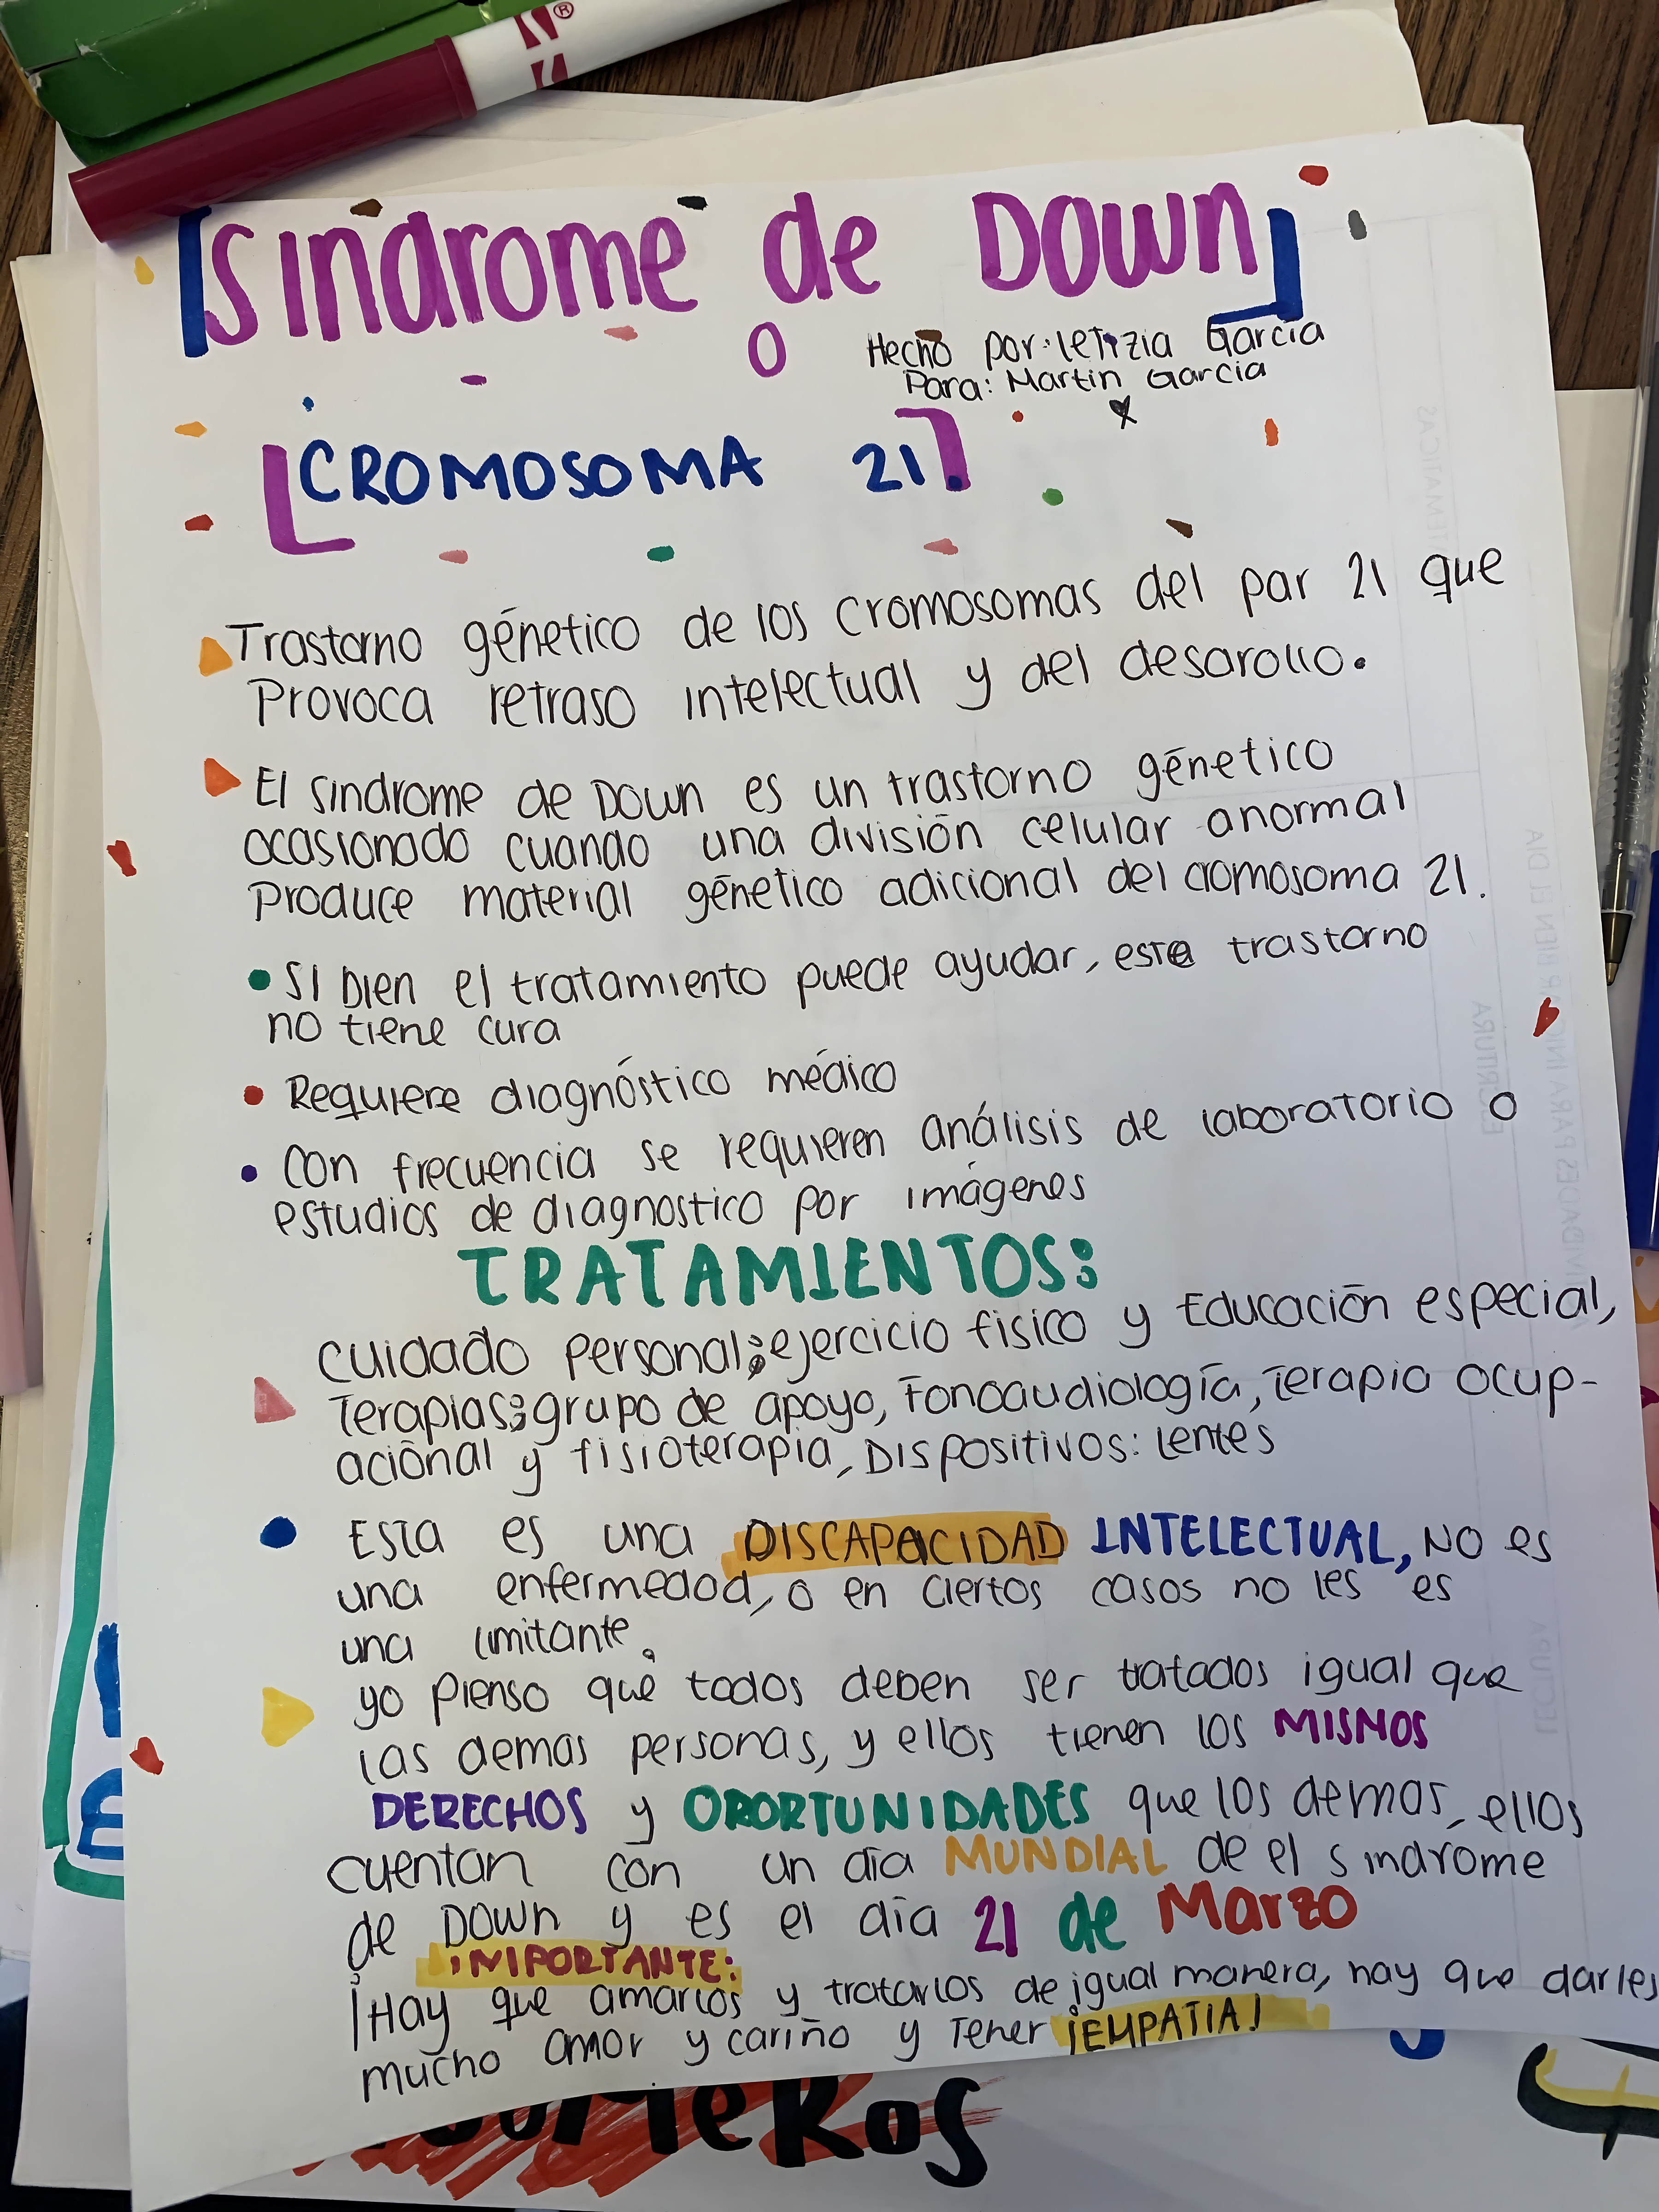 [SINDROME de DOWN]
O
Hecho por: letizia Garcia
Para: Martin Garcia
[CROMOSOMA 21]
Trastorno génetico de los cromosomas del par 21 que
Provoca retraso intelectual y del desarollo.
El sindrome de DOWN es un trastorno génetico
ocasionado cuando una división celular anormal
Produce material génetico adicional del cromosoma 21.
• SI bien el tratamiento puede ayudar, este trastorno
no tiene cura
• Requiere diagnóstico médico
• Con frecuencia se requieren análisis de laboratorio o
estudios de diagnostico por imágenes
TRATAMIENTOS:
Cuidado personal; ejercicio fisico y Educación especial,
Terapias; grupo de apoyo, Fonoaudiología, Terapia ocup-
aciónal y fisioterapia, Dispositivos: lentes
Esta es una DISCAPACIDAD INTELECTUAL, NO es
una enfermedad, o en ciertos casos no les es
una limitante.
yo Pienso que todos deben ser tratados igual que
las demas personas, y ellos tienen los MISMOS
DERECHOS y OPORTUNIDADES que los demas, ellos
cuentan con un día MUNDIAL de el sindrome
de DOWN y es el día 21 de Marzo
¡IMPORTANTE:
¡Hay que amarlos y tratarlos de igual manera, hay que darles
mucho amor y cariño y Tener ¡EMPATIA!
ACTIVIDADES PARA INICIAR BIEN EL DIA
ESCRITURA
LECTURA